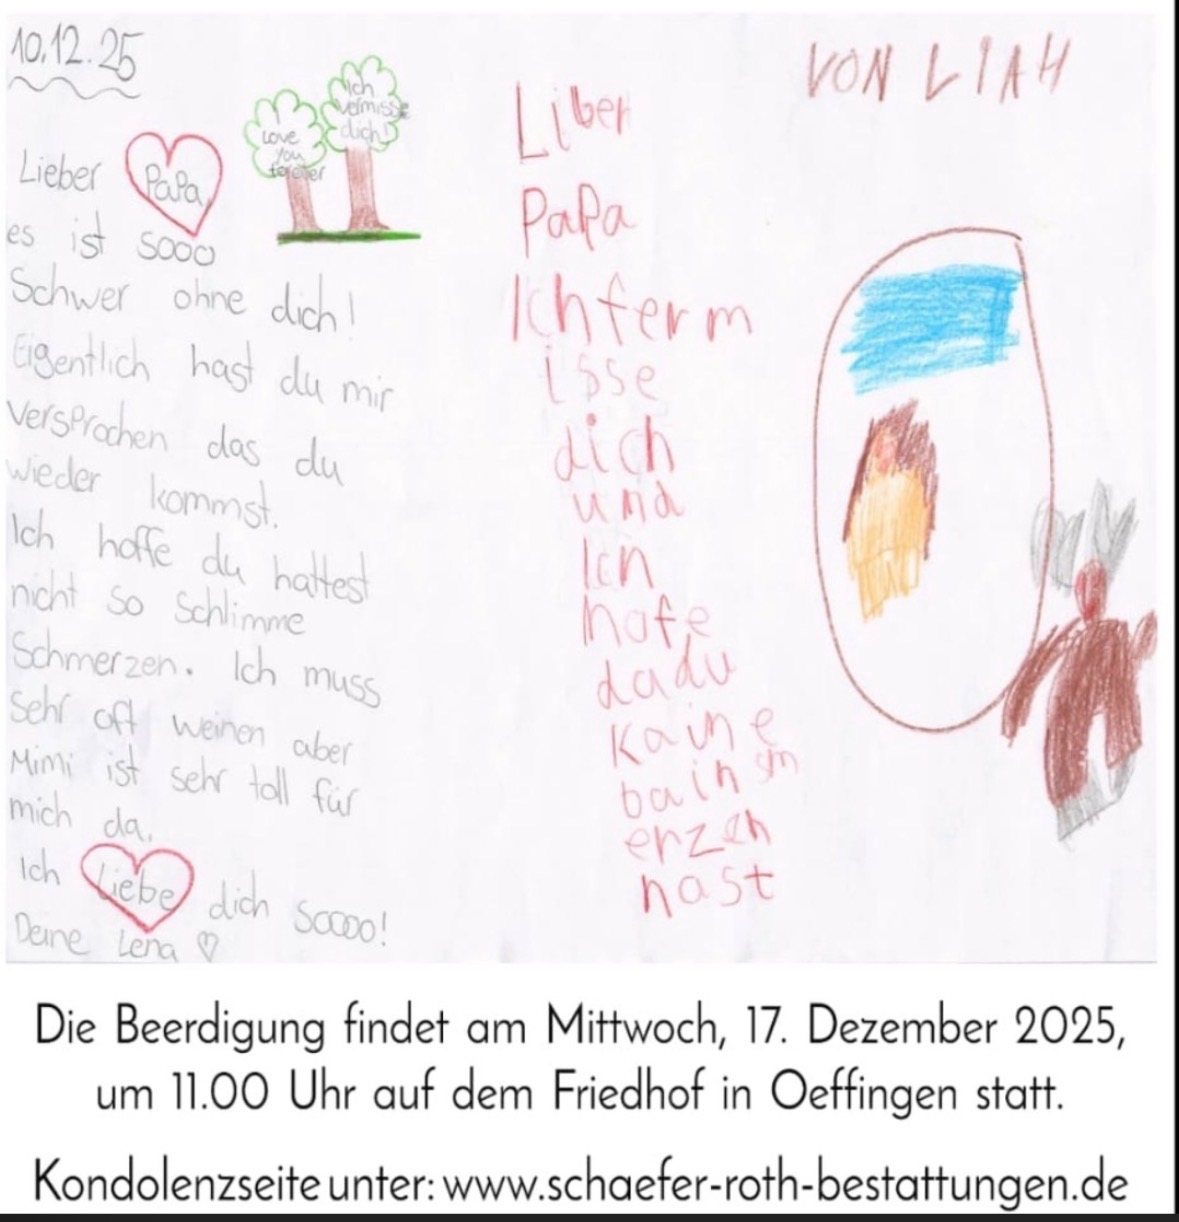 10.12.25
Love
you
forever
Ich
vermisse
dich!
Lieber Papa,
es ist sooo
Schwer ohne dich!
Eigentlich hast du mir
versprochen das du
wieder kommst.
Ich hoffe du hattest
nicht so Schlimme
Schmerzen. Ich muss
sehr oft weinen aber
Mimi ist sehr toll für
mich da.
Ich Liebe dich soooo!
Deine Lena ♡
VON LIAH
Liber
Papa
Ich ferm
isse
dich
und
Ich
hofe
dadu
Kaine
bain
erzen
hast
Die Beerdigung findet am Mittwoch, 17. Dezember 2025,
um 11.00 Uhr auf dem Friedhof in Oeffingen statt.
Kondolenzseite unter: www.schaefer-roth-bestattungen.de